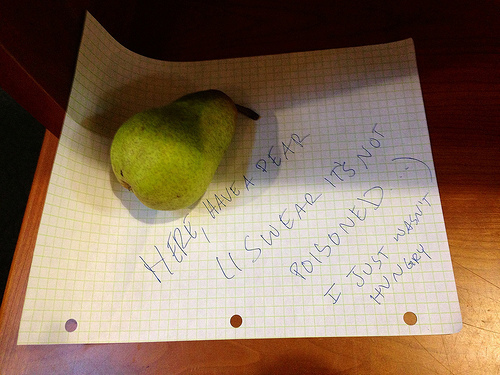 HERE, HAVE A PEAR
(I SWEAR IT'S NOT
POISONED...)
I JUST WASN'T
HUNGRY